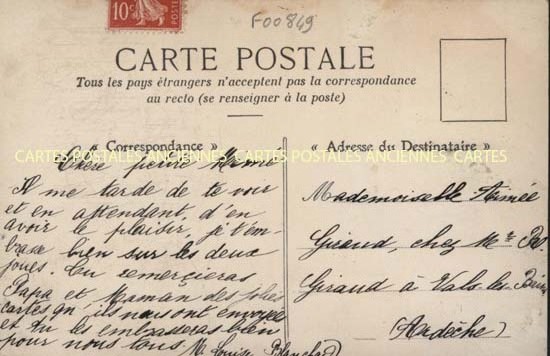 10c
F00849
CARTE POSTALE
Tous les pays étrangers n'acceptent pas la correspondance
au recto (se renseigner à la poste)
« Correspondance »
« Adresse du Destinataire »
CARTES POSTALES ANCIENNES CARTES POSTALES ANCIENNES CARTES
Chère petite Aimée
Il me tarde de te voir
et en attendant d'en
avoir le plaisir, je t'em-
brasse bien sur les deux
joues. Tu remercieras
Papa et Maman des jolies
cartes qu'ils nous ont envoyée
et tu les embrasseras bien
pour nous tous. M. Louise Blanchard
Mademoiselle Aimée
Giraud, chez Mr
Giraud à Vals les Bains
(Ardèche)